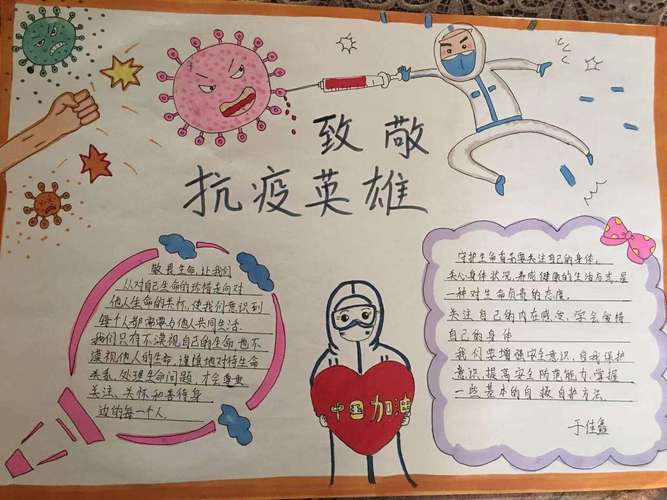 致敬
抗疫英雄
敬畏生命,让我们
从对自己生命的珍惜走向对
他人生命的关怀,使我们意识到
每个人都需要与他人共同生活.
我们只有不漠视自己的生命,也不
漠视他人的生命,谨慎地对待生命
关系,处理生命问题,才会
关注、关怀和善待身
边的每一个人.
守护生命首先要关注自己的身体.
关心身体状况,养成健康的生活方式,是
一种对生命负责的态度.
关注自己的内在感受,学会爱惜
自己的身体
我们要增强安全意识、自我保护
意识,提高安全防范能力,掌握
一些基本的自救自护方法.
于佳鑫
中国加油